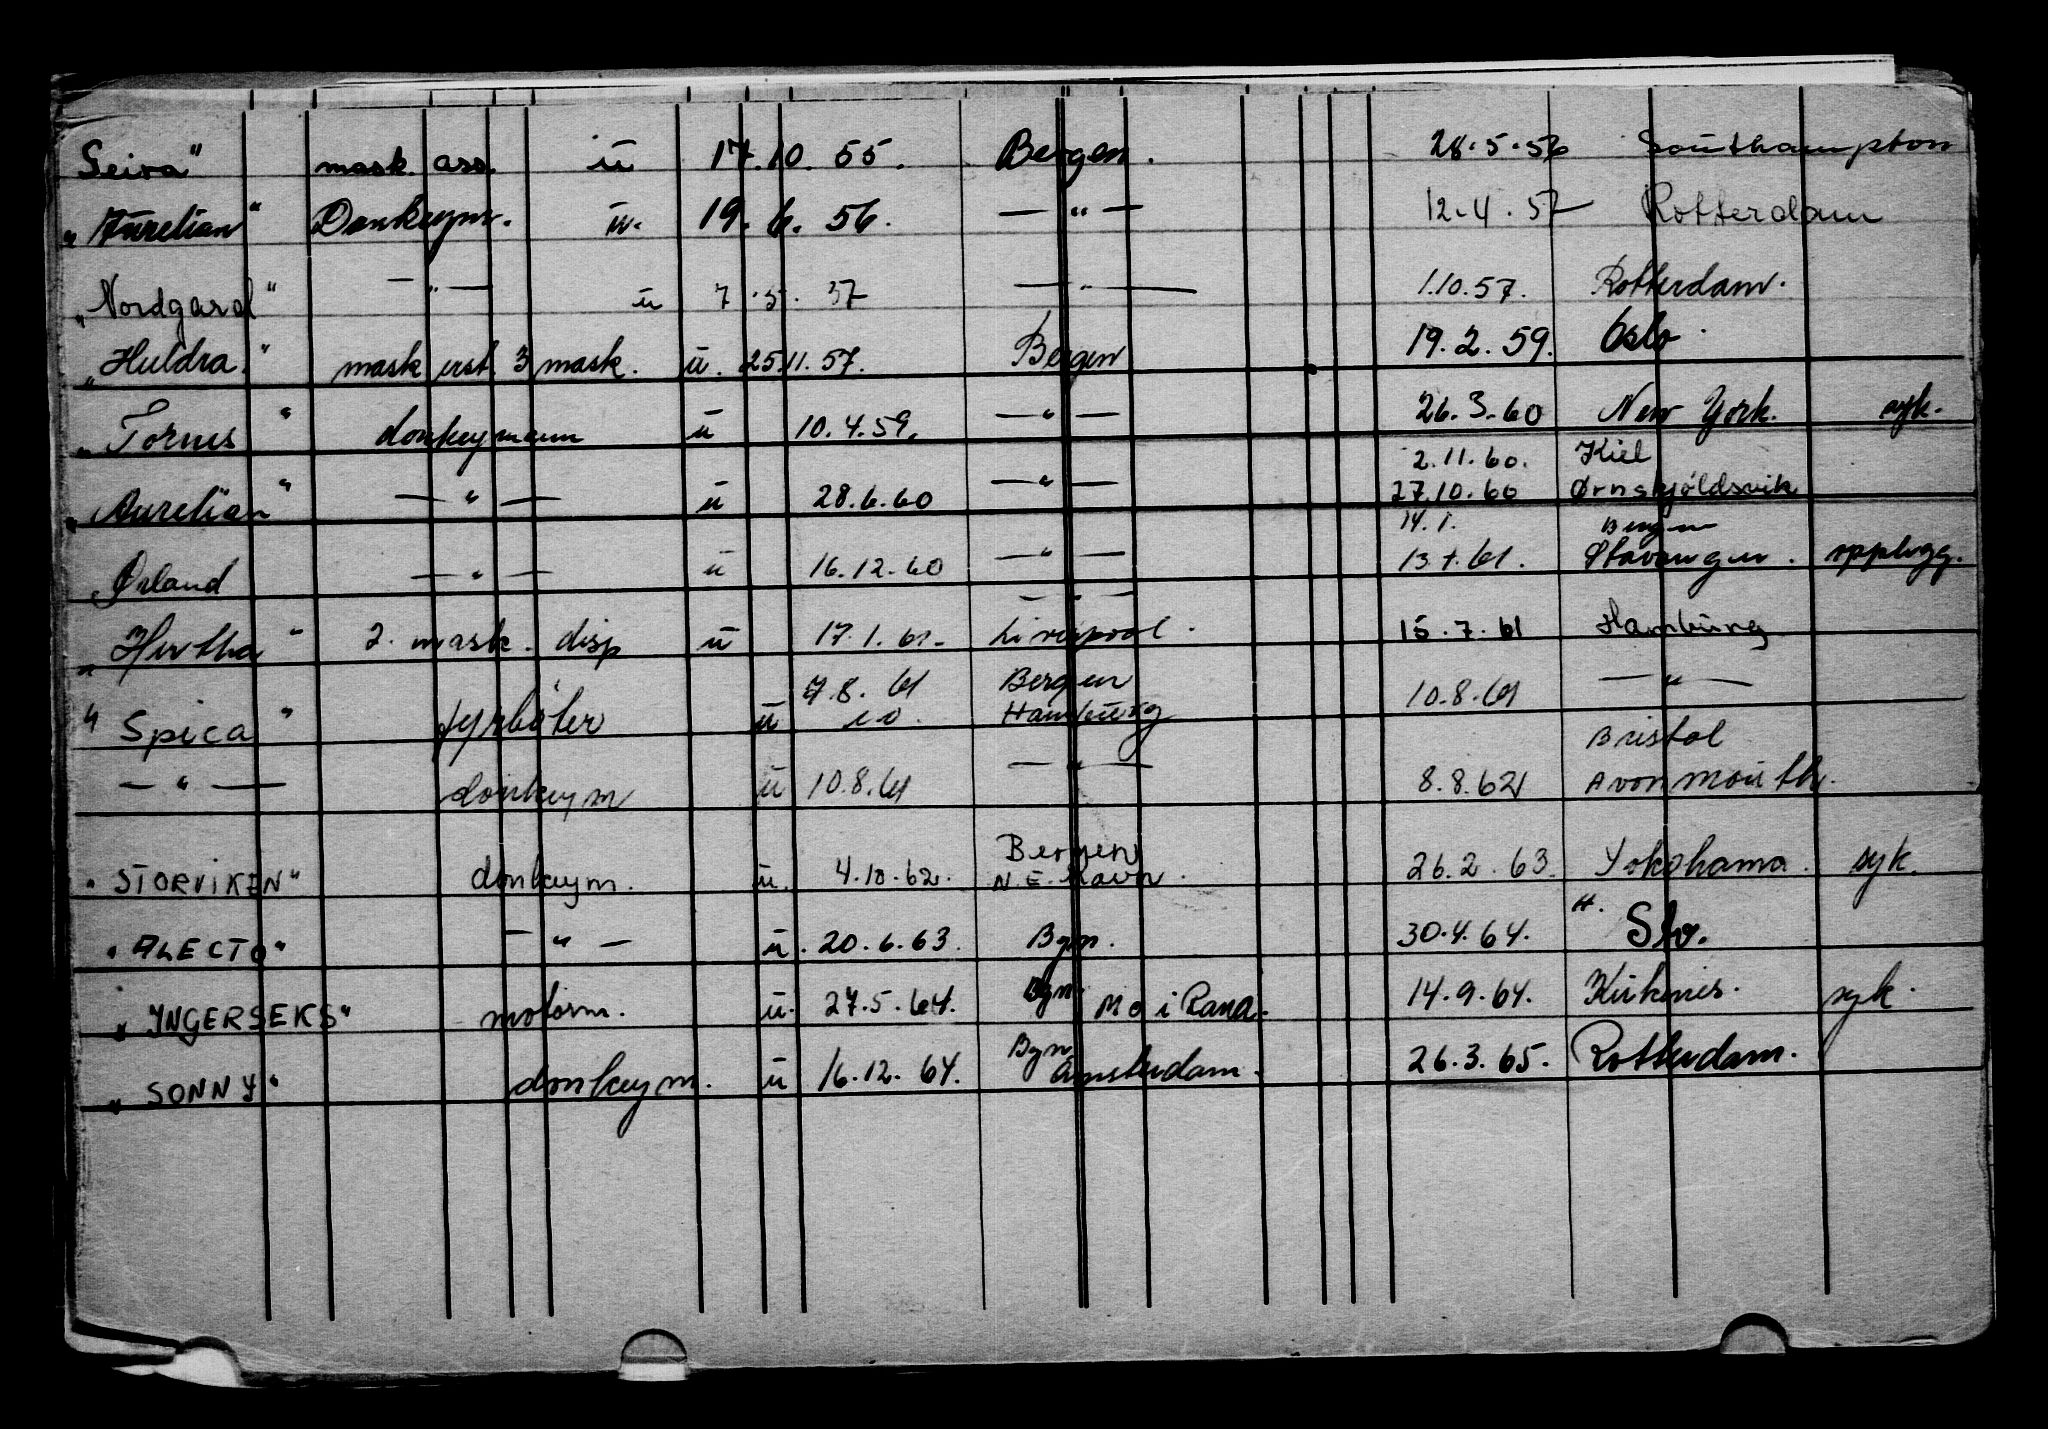 Seira" mask. ass. u 17.10. 55. Bergen. 28.5.56 Southampton
"Aurelian" Donkeym. u. 19. 6. 56. — " — 12.4.57 Rotterdam
"Nordgard" — " — u 7. 5. 57 — " — 1.10.57. Rotterdam.
"Huldra" mask erst. 3 mask. u. 25.11.57. Bergen 19.2.59. Oslo.
"Tornes" donkeymann u 10.4.59. — " — 26.3.60 New York. syk.
2.11.60. Kiel
"Aurelian" — " — u 28.6.60 — " — 27.10.60 Ørnskjöldsvik
14.1. Bergen
"Ørland — " — u 16.12.60 — " — 13.1.61. Stavanger. opplegg.
— " —
"Hertha" 2. mask. disp u 17.1.61. Liverpool. 15.7.61 Hamburg
7.8.61 Bergen
"Spica" fyrböter u 10. Hamburg 10.8.61 — " —
Bristol
— " — donkeym u 10.8.61 — " — 8.8.62 Avonmouth.
Bergen
"STORVIKEN" donkeym. u. 4.10.62. N.E. Havn. 26.2.63. Yokohama. syk.
"ALECTO" — " — u. 20.6.63. Bgn. 30.4.64. H. Slv.
"YNGERSEKS" motorm. u. 27.5.64. Bgn. Mo i Rana. 14.9.64. Kirkenes. syk.
"SONNY" donkeym. u 16.12.64. Bgn. Amsterdam. 26.3.65. Rotterdam.